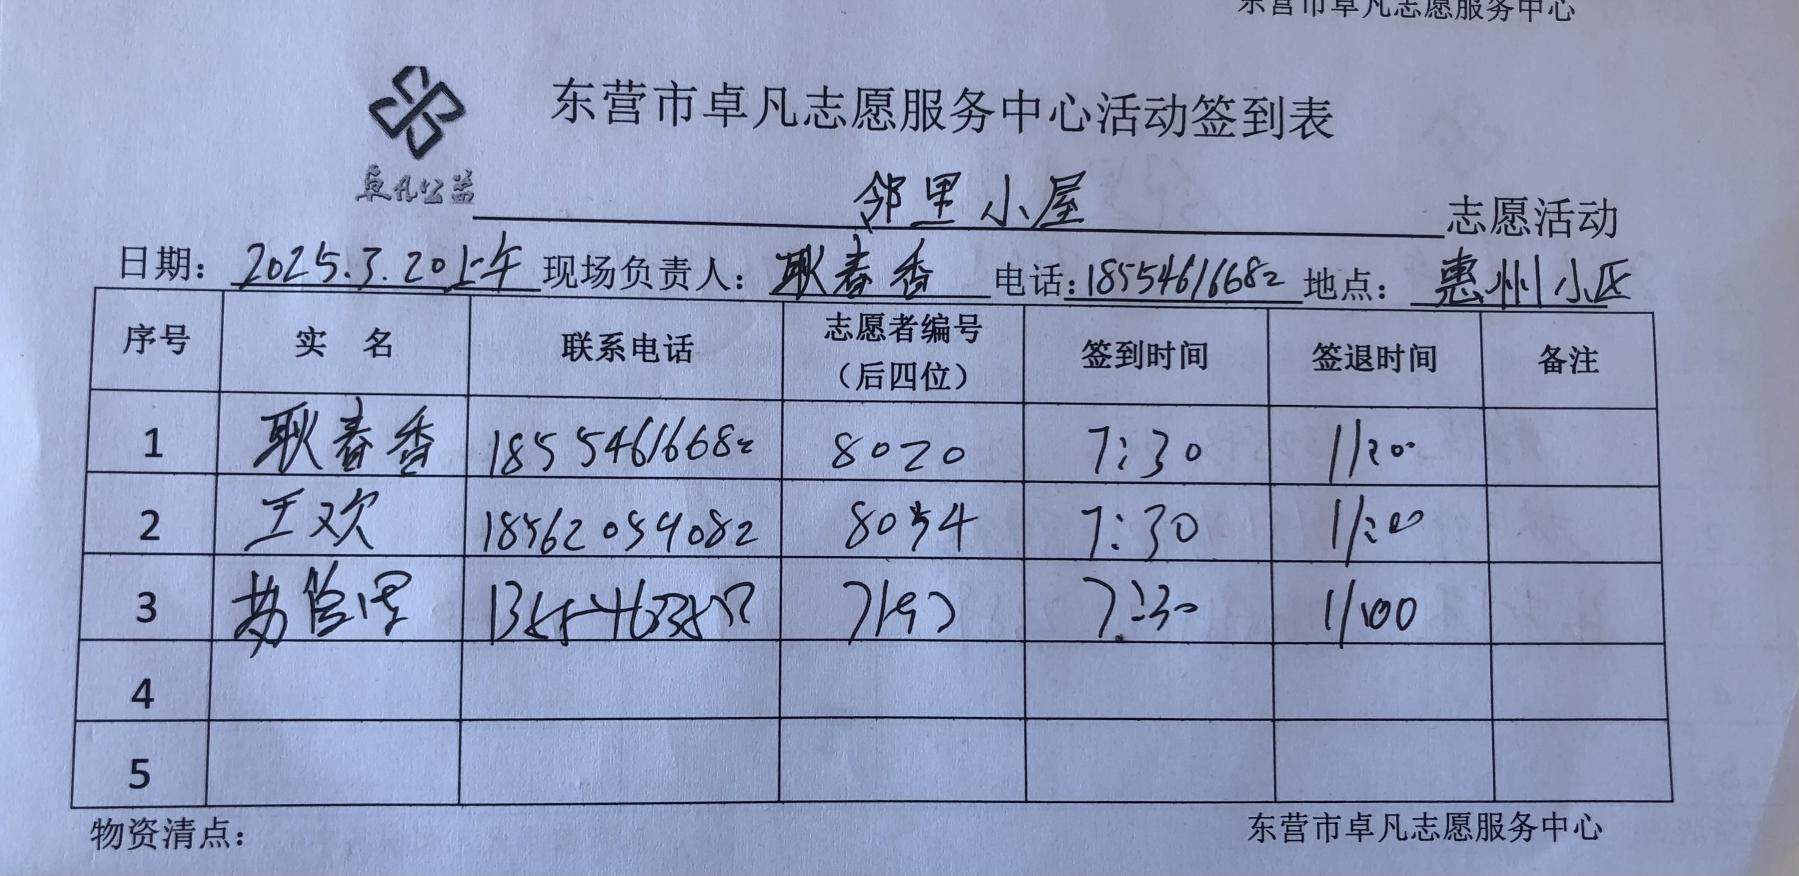 东营市卓凡志愿服务中心
东营市卓凡志愿服务中心活动签到表
卓凡公益
邻里小屋 志愿活动
日期: 2025.3.20上午 现场负责人: 耿春香 电话: 18554616682 地点: 惠州小区
序号 实 名 联系电话 志愿者编号（后四位） 签到时间 签退时间 备注
1 耿春香 18554616682 8020 7:30 11:00
2 王欢 18562059082 8054 7:30 11:00
3 7197 7:30 11:00
4
5
物资清点: 东营市卓凡志愿服务中心